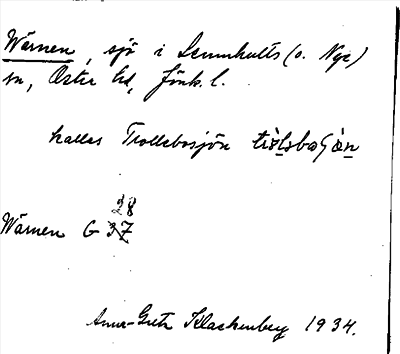 Wärnen, sjö i Lemnhults (o. Nye)
sn, Östra hd, Jönk. l.
kallas Trollebosjön
Wärnen G 28 37
Anna-Greta Klackenberg 1934.